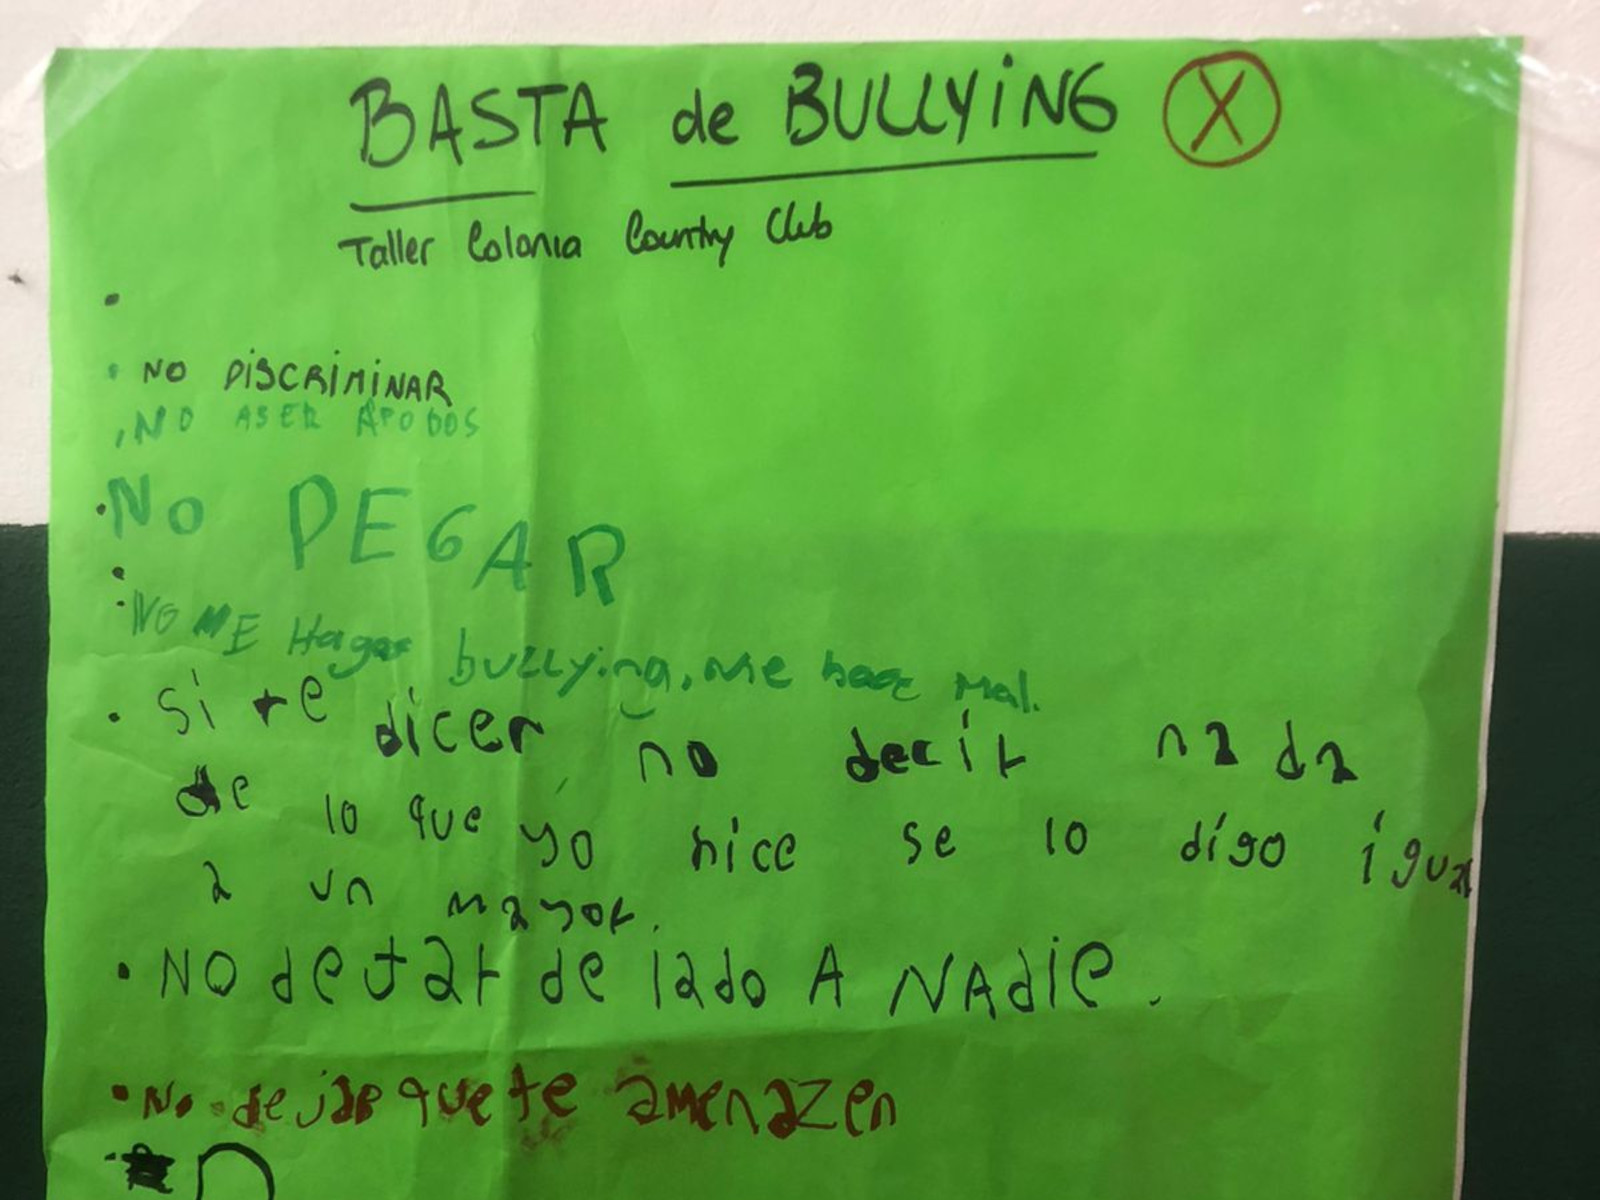 BASTA de BULLYiNG X
Taller Colonia Country Club
•
• NO DiSCRiMiNAR
, NO ASER APODOS
• No PEGAR
•
• NO ME Hagas bullying, me hace mal.
• Si te dicen no decir nada
de lo que yo hice se lo digo igual
a un mayor.
• NO dejar de lado A NAdie.
• No dejar que te amenazen